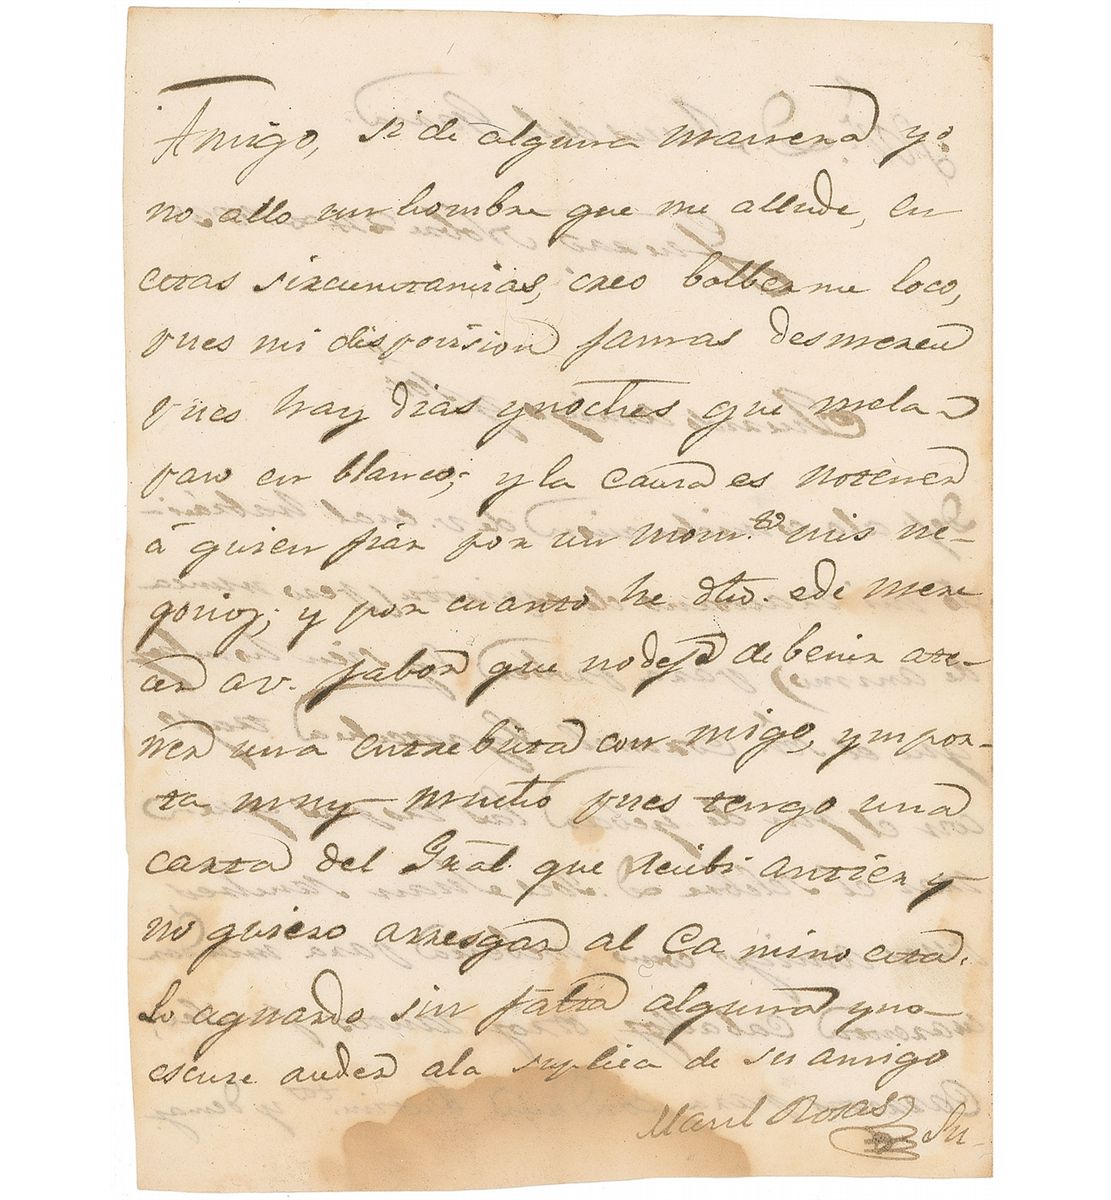 Amigo, si de alguna manera yo
no allo un hombre que me allude, en
estas sircunstansias, creo bolberme loco,
pues mi disposision jamas desmerese
pues hay dias y noches que mela
paso en blanco; y la causa es notener
á quien fiar por un mom.to mis ne-
gosios; y por cuanto he dho. ede mere
ser a v. fabor que no deje de benir ate-
ner una entrebista con migo, ympor-
ta muy mucho pues tengo una
carta del Gral. que recibi antier y
no quiero arresgar al Camino esta.
lo aguardo sin falta alguna y no
escuse aseder ala suplica de su amigo
Manl Rosas Su-